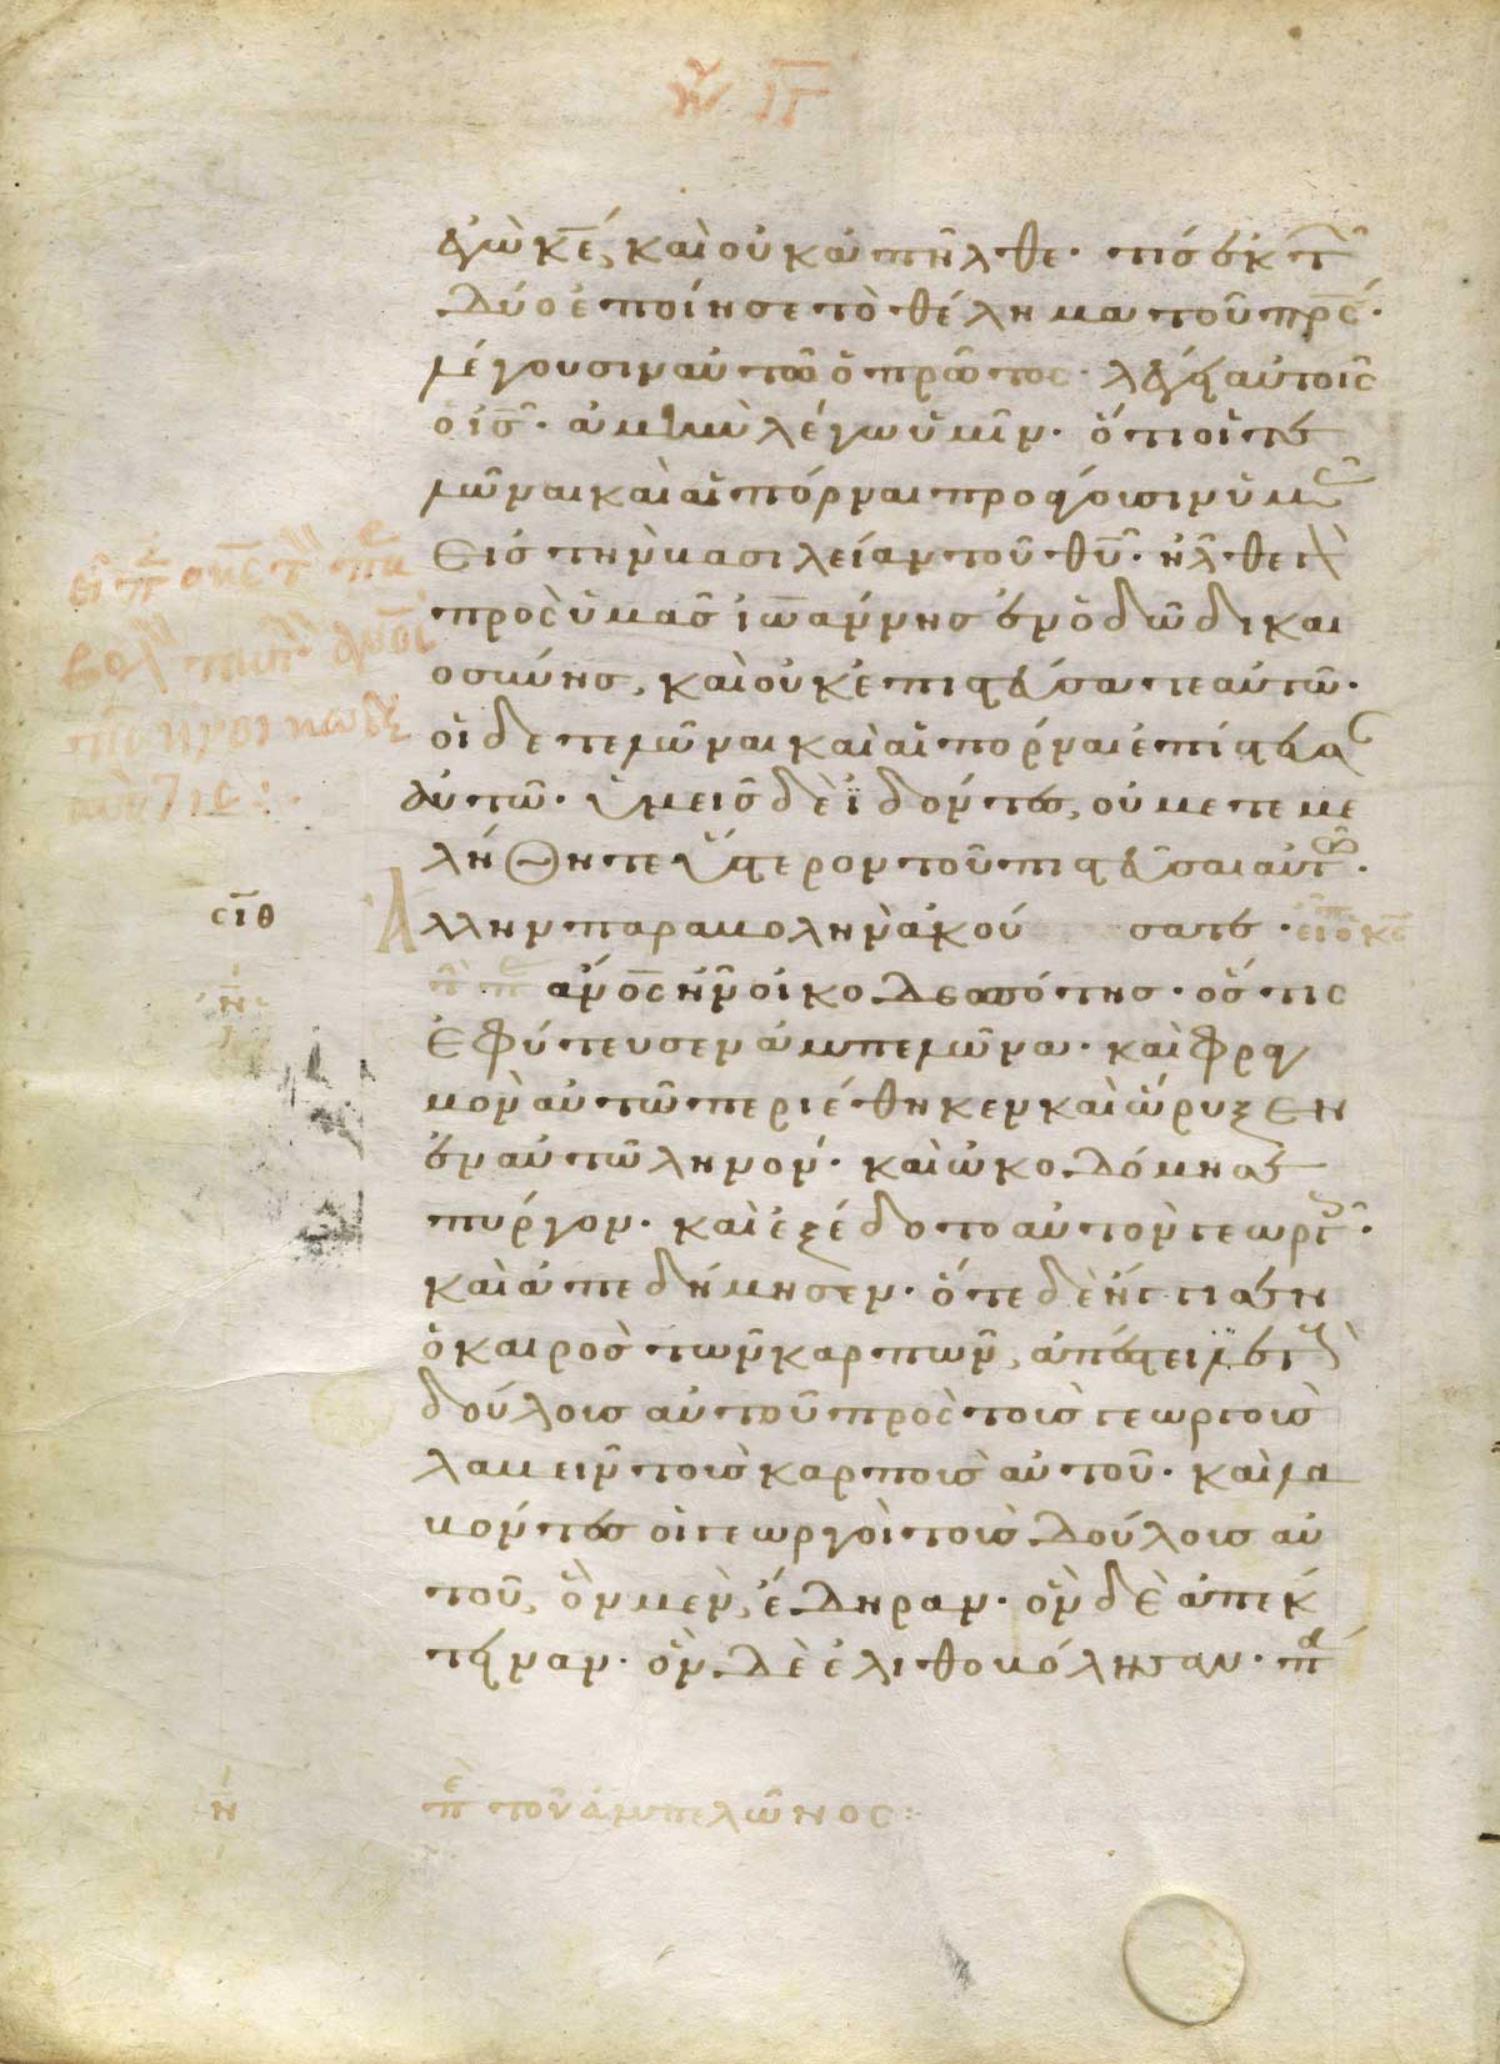 ἐγὼ κε, καὶ οὐκ ἀπῆλθε· τίς ἐκ τ
δύο ἐποίησε τὸ θέλημα τοῦ πρς·
λέγουσιν αὐτῶ ὁ πρῶτος· λέγει αὐτοῖς
ὁ ις· ἀμὴν λέγω ὑμῖν· ὅτι οἱ τε
λῶναι καὶ αἱ πόρναι προάγουσιν ὑμ
εἰς τὴν βασιλείαν τοῦ θυ· ἦλθε
πρὸς ὑμᾶς ἰωάννης ἐν ὁδῶ δικαι
οσύνης, καὶ οὐκ ἐπιστεύσατε αὐτῶ·
οἱ δὲ τελῶναι καὶ αἱ πόρναι ἐπίστευσα
αὐτῶ· ὑμεῖς δὲ ἰδόντες, οὐ μετεμε
λήθητε ὕστερον τοῦ πιστεῦσαι αὐτῶ·
σιθ Ἄλλην παραβολὴν ἀκούσατε·
ανος ἦν οἰκοδεσπότης· ὅστις
ἐφύτευσεν ἀμπελῶνα· καὶ φραγ
μὸν αὐτῶ περιέθηκεν καὶ ὤρυξεν
ἐν αὐτῶ ληνόν· καὶ ὠκοδόμησε
πύργον· καὶ ἐξέδοτο αὐτὸν γεωργ·
καὶ ἀπεδήμησεν· ὅτε δὲ ἤγγισεν
ὁ καιρὸς τῶν καρπῶν, ἀπέστειλε τ
δούλους αὐτοῦ πρὸς τοὺς γεωργοὺς
λαβεῖν τοὺς καρποὺς αὐτοῦ· καὶ λα
βόντες οἱ γεωργοὶ τοὺς δούλους αὐ
τοῦ, ὃν μὲν, ἔδηραν· ὃν δὲ ἀπέκ
τειναν· ὃν δὲ ἐλιθοβόλησαν· π
π τοῦ ἀμπελῶνος: